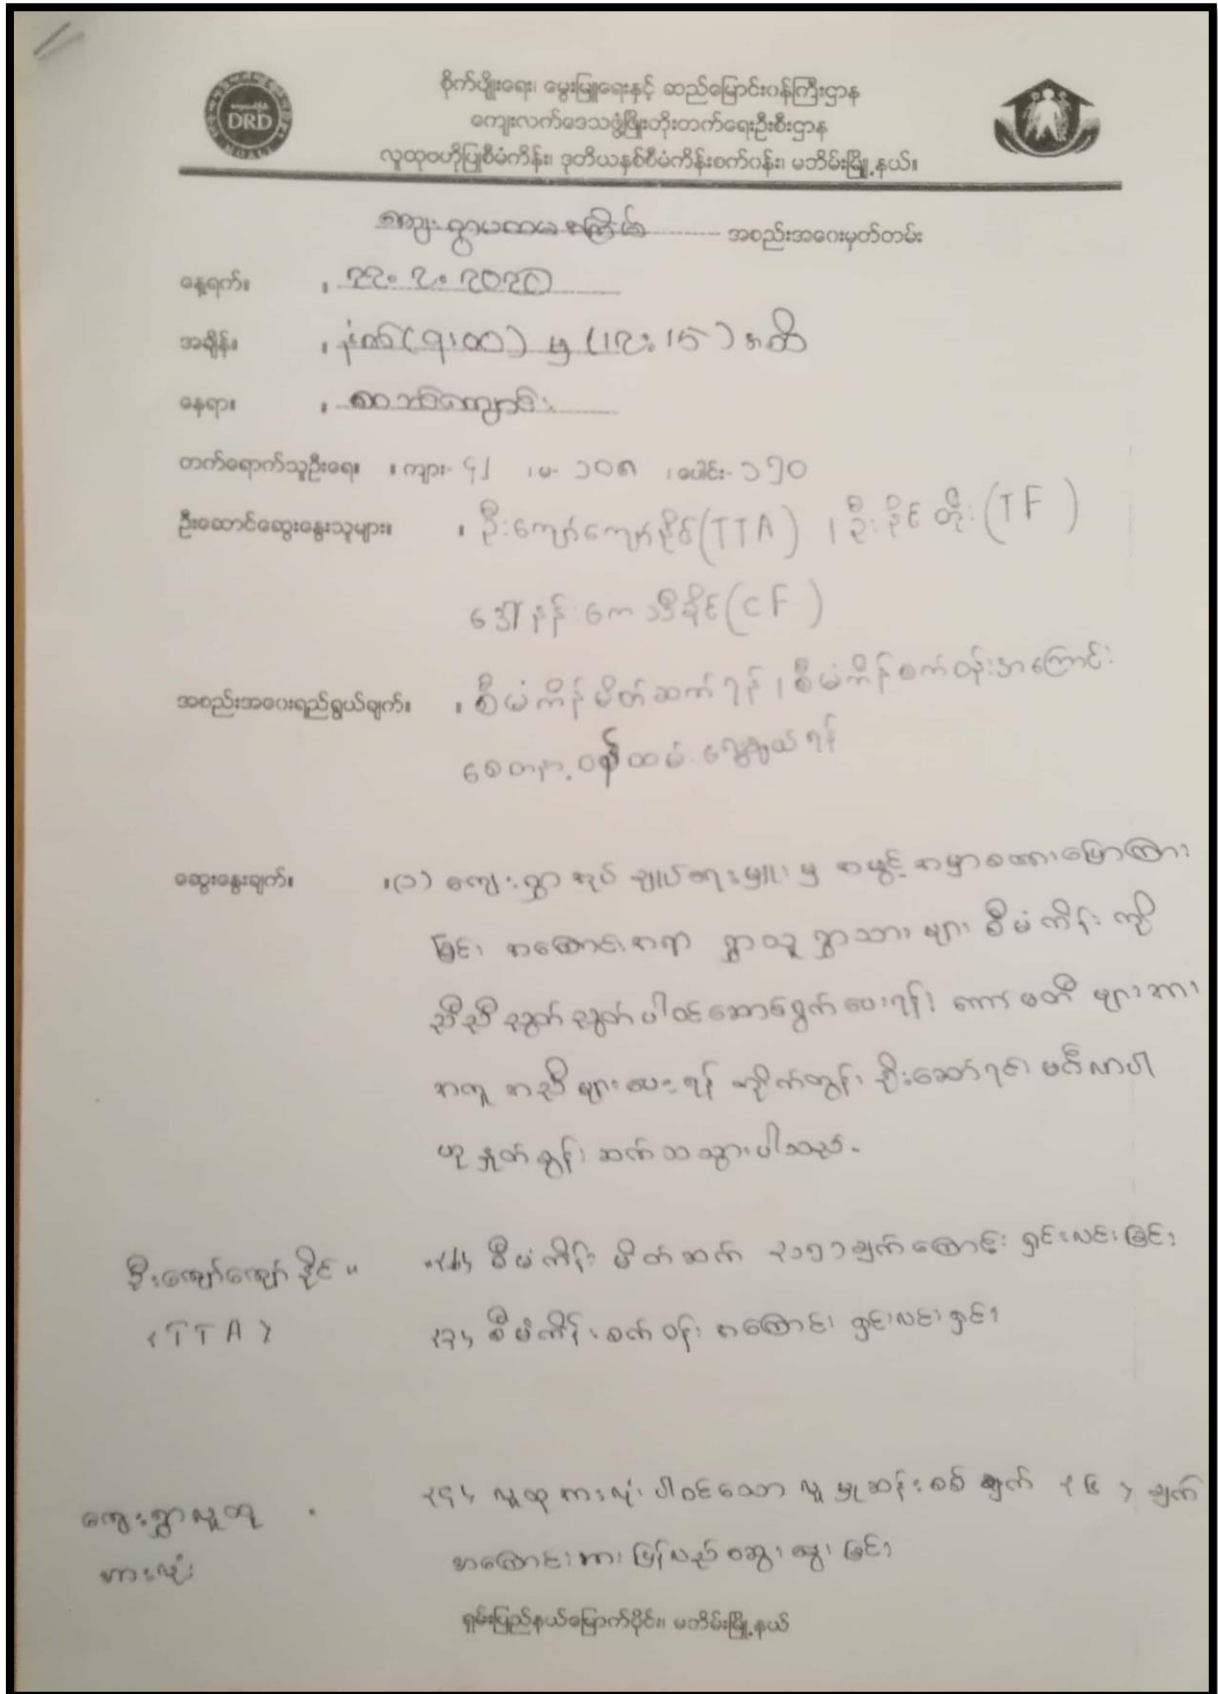 စိုက်ပျိုးရေး၊ မွေးမြူရေးနှင့် ဆည်မြောင်းဝန်ကြီးဌာန
DRD
ကျေးလက်ဒေသဖွံ့ဖြိုးတိုးတက်ရေးဦးစီးဌာန
လူထုဗဟိုပြုစီမံကိန်း၊ ဒုတိယနှစ်စီမံကိန်းစက်ဝန်း၊ မဘိမ်းမြို့နယ်။
ကျေးရွာပထမအကြိမ် အစည်းအဝေးမှတ်တမ်း
နေ့ရက်။ ။ ၇.၂၀၂၀
အချိန်။ ။ နံနက်(၉:၀၀) မှ (၁၂:၁၅) အထိ
နေရာ။ ။ စာသင်ကျောင်း
တက်ရောက်သူဦးရေ။ ။ ကျား- ၊ မ- ၁၀၈ ၊ ပေါင်း- ၁၅၀
ဦးဆောင်ဆွေးနွေးသူများ။ ။ ဦးကျော်ကျော်နိုင်(TTA) ၊ ဦးနိုင်တိုး(TF)
ဒေါ်နန်းကေသီခိုင်(CF)
အစည်းအဝေးရည်ရွယ်ချက်။ ။ စီမံကိန်းမိတ်ဆက်ရန်၊ စီမံကိန်းစက်ဝန်းအကြောင်း
စေတနာ့ဝန်ထမ်းရွေးချယ်ရန်
ဆွေးနွေးချက်။ ။(၁) ကျေးရွာအုပ်ချုပ်ရေးမှူးမှ အဖွင့်အမှာစကားပြောကြား
ခြင်း၊ အကြောင်းအရာ ရွာသူရွာသားများ စီမံကိန်းကို
ညီညီညွတ်ညွတ်ပါဝင်ဆောင်ရွက်ပေးရန်၊ ကော်မတီများအား
အကူအညီများပေးရန် တိုက်တွန်း မင်္ဂလာပါ
ဟု နှုတ်ခွန်းဆက်သသွားပါသည်။
ဦးကျော်ကျော်နိုင် ။ စီမံကိန်းမိတ်ဆက် ချက်ကြောင်း ရှင်းလင်းခြင်း
(TTA) (၃) စီမံကိန်းစက်ဝန်းအကြောင်း ရှင်းလင်းခြင်း
ကျေးရွာလူထု ။ (၄) လူထုအားလုံးပါဝင်သော လူမှုဆန်းစစ်ချက် ချက်
အားလုံး အကြောင်းအား ပြန်လည်ဆွေးနွေးခြင်း
ရှမ်းပြည်နယ်မြောက်ပိုင်း၊ မဘိမ်းမြို့နယ်